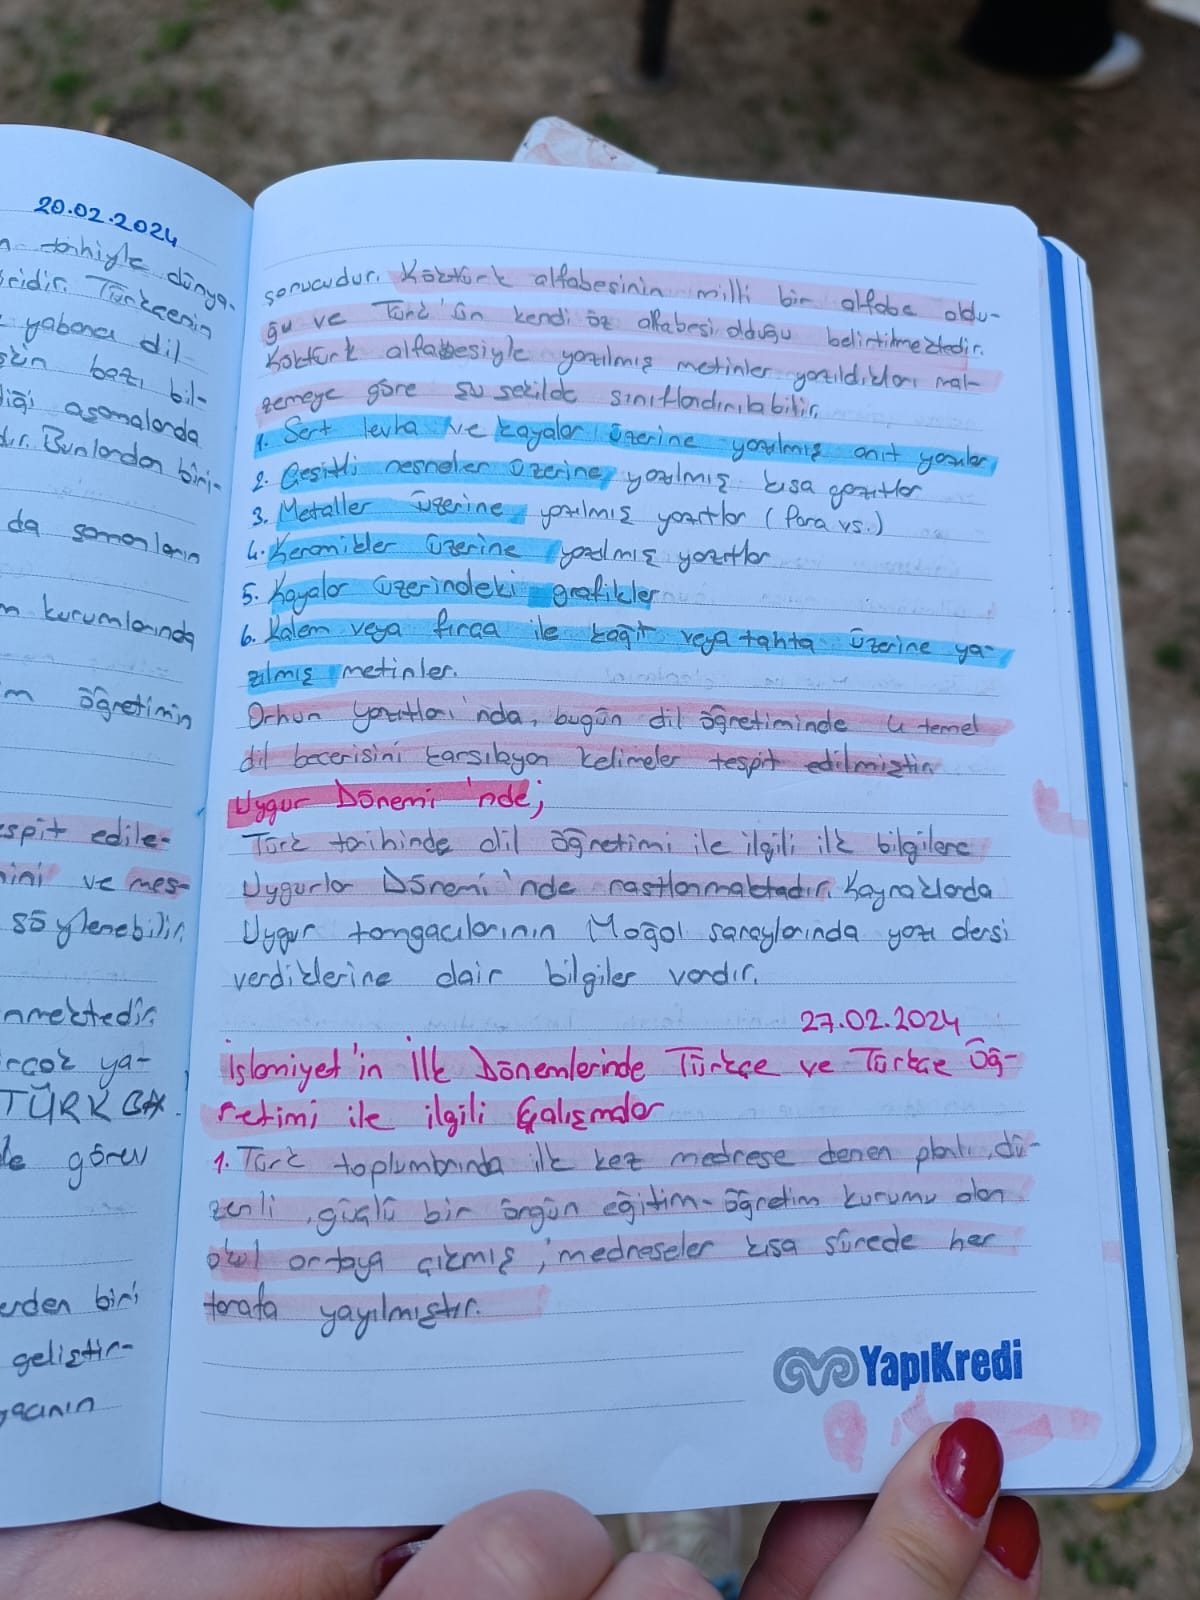 20.02.2024
tarihiyle dünya-
Türkçenin
yabancı dil
bazı bil-
aşamalarda
Bunlardan biri-
da şamanların
kurumlarında
öğretimin
espit edile-
ve mes-
söylenebilir.
nmektedir.
ya-
TÜRKÇA
görev
erden biri
geliştir-
sonucudur. Köktürk alfabesinin milli bir alfabe oldu-
ğu ve Türk'ün kendi öz alfabesi olduğu belirtilmektedir.
Köktürk alfabesiyle yazılmış metinler yazıldıkları mal-
zemeye göre şu şekilde sınıflandırılabilir.
1. Sert levha ve kayalar üzerine yazılmış anıt yazılar
2. Çeşitli nesneler üzerine yazılmış kısa yazıtlar
3. Metaller üzerine yazılmış yazıtlar (Para vs.)
4. Keramikler üzerine yazılmış yazıtlar
5. Kayalar üzerindeki grafikler
6. Kalem veya fırça ile kağıt veya tahta üzerine ya-
zılmış metinler.
Orhun Yazıtları'nda, bugün dil öğretiminde 4 temel
dil becerisini karşılayan kelimeler tespit edilmiştir.
Uygur Dönemi'nde;
Türk tarihinde dil öğretimi ile ilgili ilk bilgilere
Uygurlar Dönemi'nde rastlanmaktadır. Kaynaklarda
Uygur tamgacılarının Moğol saraylarında yazı dersi
verdiklerine dair bilgiler vardır.
27.02.2024
İslamiyet'in İlk Dönemlerinde Türkçe ve Türkçe Öğ-
retimi ile ilgili Çalışmalar
1. Türk toplumlarında ilk kez medrese denen planlı, dü-
zenli, güçlü bir örgün eğitim-öğretim kurumu olan
okul ortaya çıkmış, medreseler kısa sürede her
tarafa yayılmıştır.
YapıKredi